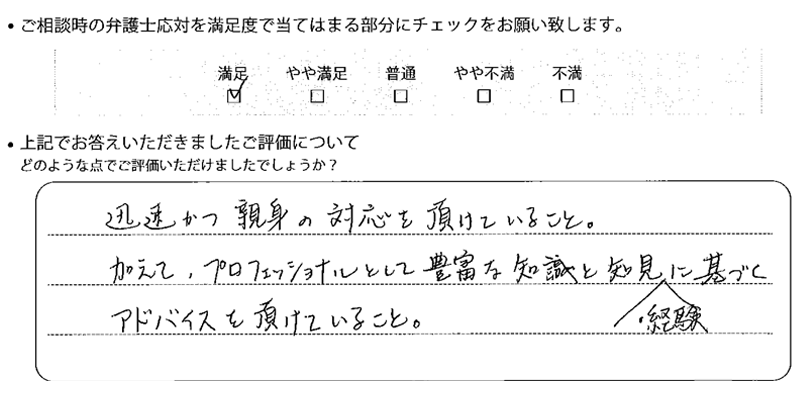 ・ご相談時の弁護士応対を満足度で当てはまる部分にチェックをお願い致します。
満足 やや満足 普通 やや不満 不満
☑ □ □ □ □
・上記でお答えいただきましたご評価について
どのような点でご評価いただけましたでしょうか？
迅速かつ親身の対応を頂けていること。
加えて、プロフェッショナルとして豊富な知識と知見・経験に基づく
アドバイスを頂けていること。